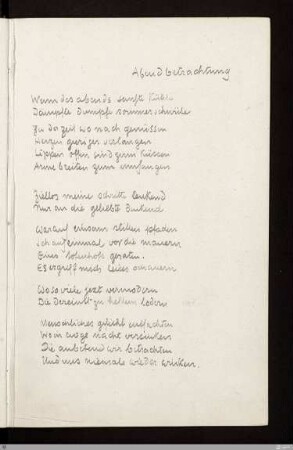 Abendbetrachtung
Wenn des abends sanfte kühle
Dämpfte dumpfe sommerschwüle
Zu der zeit wo nach genüssen
Herzen gieriger verlangen
Lippen offen sind zum küssen
Arme breiten zum umfangen
Ziellos meine schritte lenkend
Nur an die geliebte denkend
Warauf einsam stillen pfaden
Ich auf einmal vor die mauern
Eines totenhofs geraten.
Es ergriff mich leises schauern
Wo so viele jezt vermodern
Die dereinst zu hellem lodern
Menschliches gefühl entfachten
Wo in ewge nacht versinken
Die anbetend wir betrachten
Und uns niemals wieder winken.